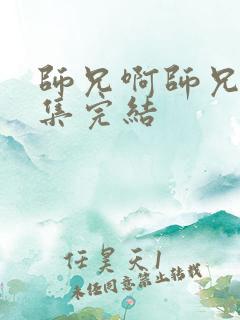 師兄啊師兄
集完結
任昊天1
未經同意禁止轉載